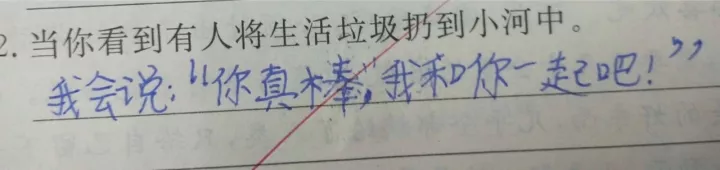 2.当你看到有人将生活垃圾扔到小河中。
我会说:“你真棒,我和你一起吧!”